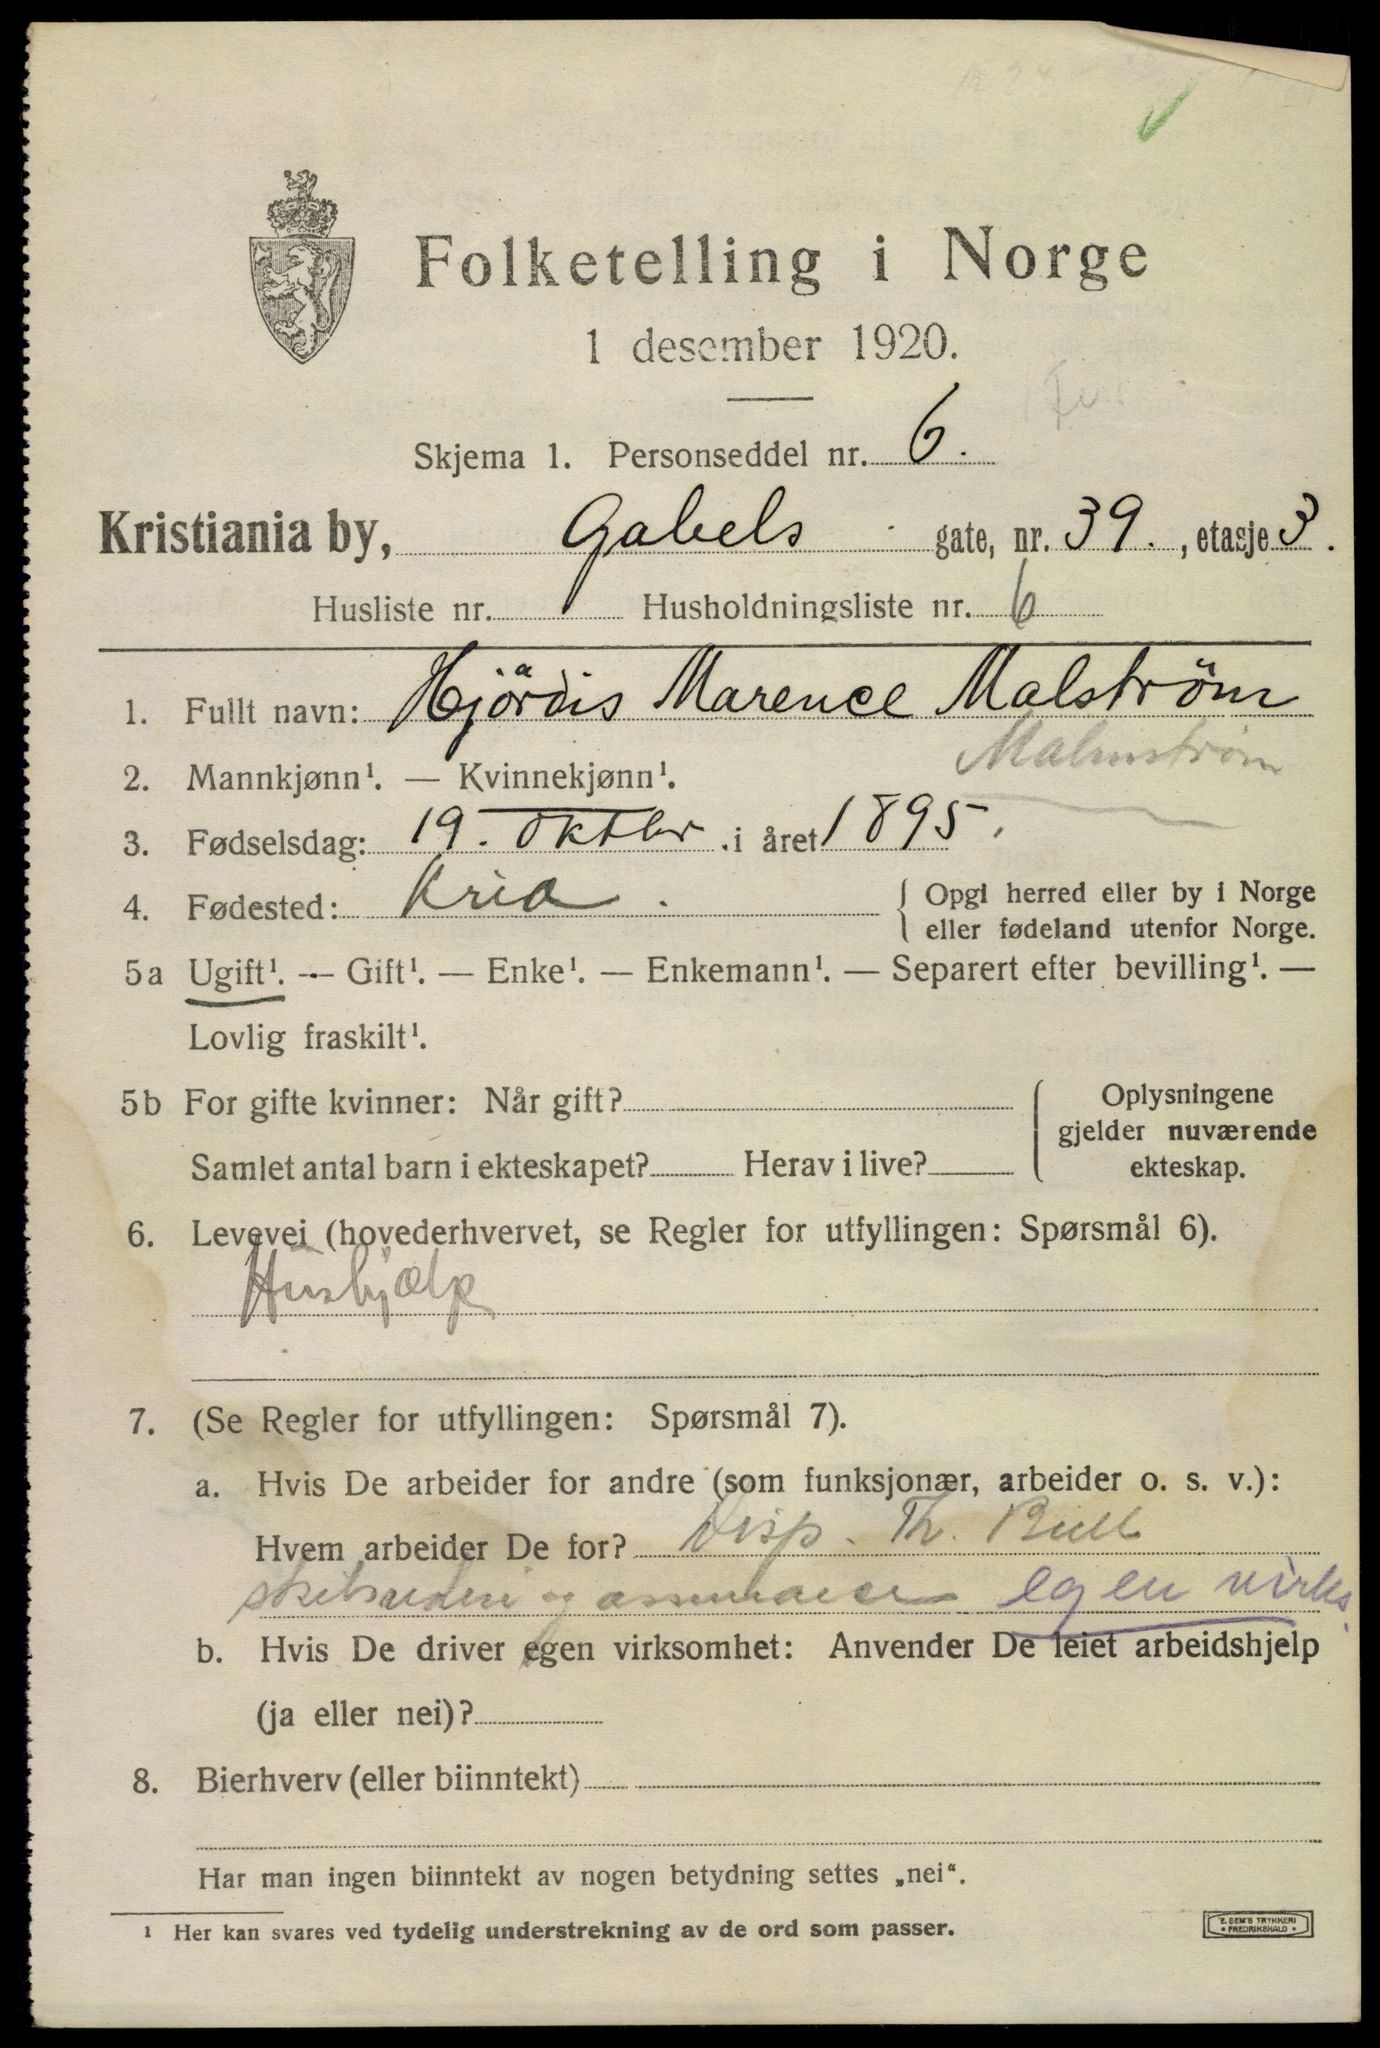 Folketelling i Norge
1 desember 1920.
Skjema 1. Personseddel nr. 6.
Kristiania by, Gabels gate, nr. 39., etasje 3.
Husliste nr. Husholdningsliste nr. 6
1. Fullt navn: Hjördis Marence Malström
Malmstrøm
2. Mannkjønn¹. — Kvinnekjønn¹.
3. Fødselsdag: 19. oktbr. i året 1895.
4. Fødested: Kria. { Opgi herred eller by i Norge
eller fødeland utenfor Norge.
5a Ugift¹. — Gift¹. — Enke¹. — Enkemann¹. — Separert efter bevilling¹. —
Lovlig fraskilt¹.
5b For gifte kvinner: Når gift? { Oplysningene
gjelder nuværende
Samlet antal barn i ekteskapet? Herav i live? ekteskap.
6. Levevei (hovederhvervet, se Regler for utfyllingen: Spørsmål 6).
Hushjælp
7. (Se Regler for utfyllingen: Spørsmål 7).
a. Hvis De arbeider for andre (som funksjonær, arbeider o. s. v.):
Hvem arbeider De for? Disp. Th. Bull
og egen virks.
b. Hvis De driver egen virksomhet: Anvender De leiet arbeidshjelp
(ja eller nei)?
8. Bierhverv (eller biinntekt)
Har man ingen biinntekt av nogen betydning settes „nei“.
¹ Her kan svares ved tydelig understrekning av de ord som passer.
E. SEM'S TRYKKERI
• FREDRIKSHALD •